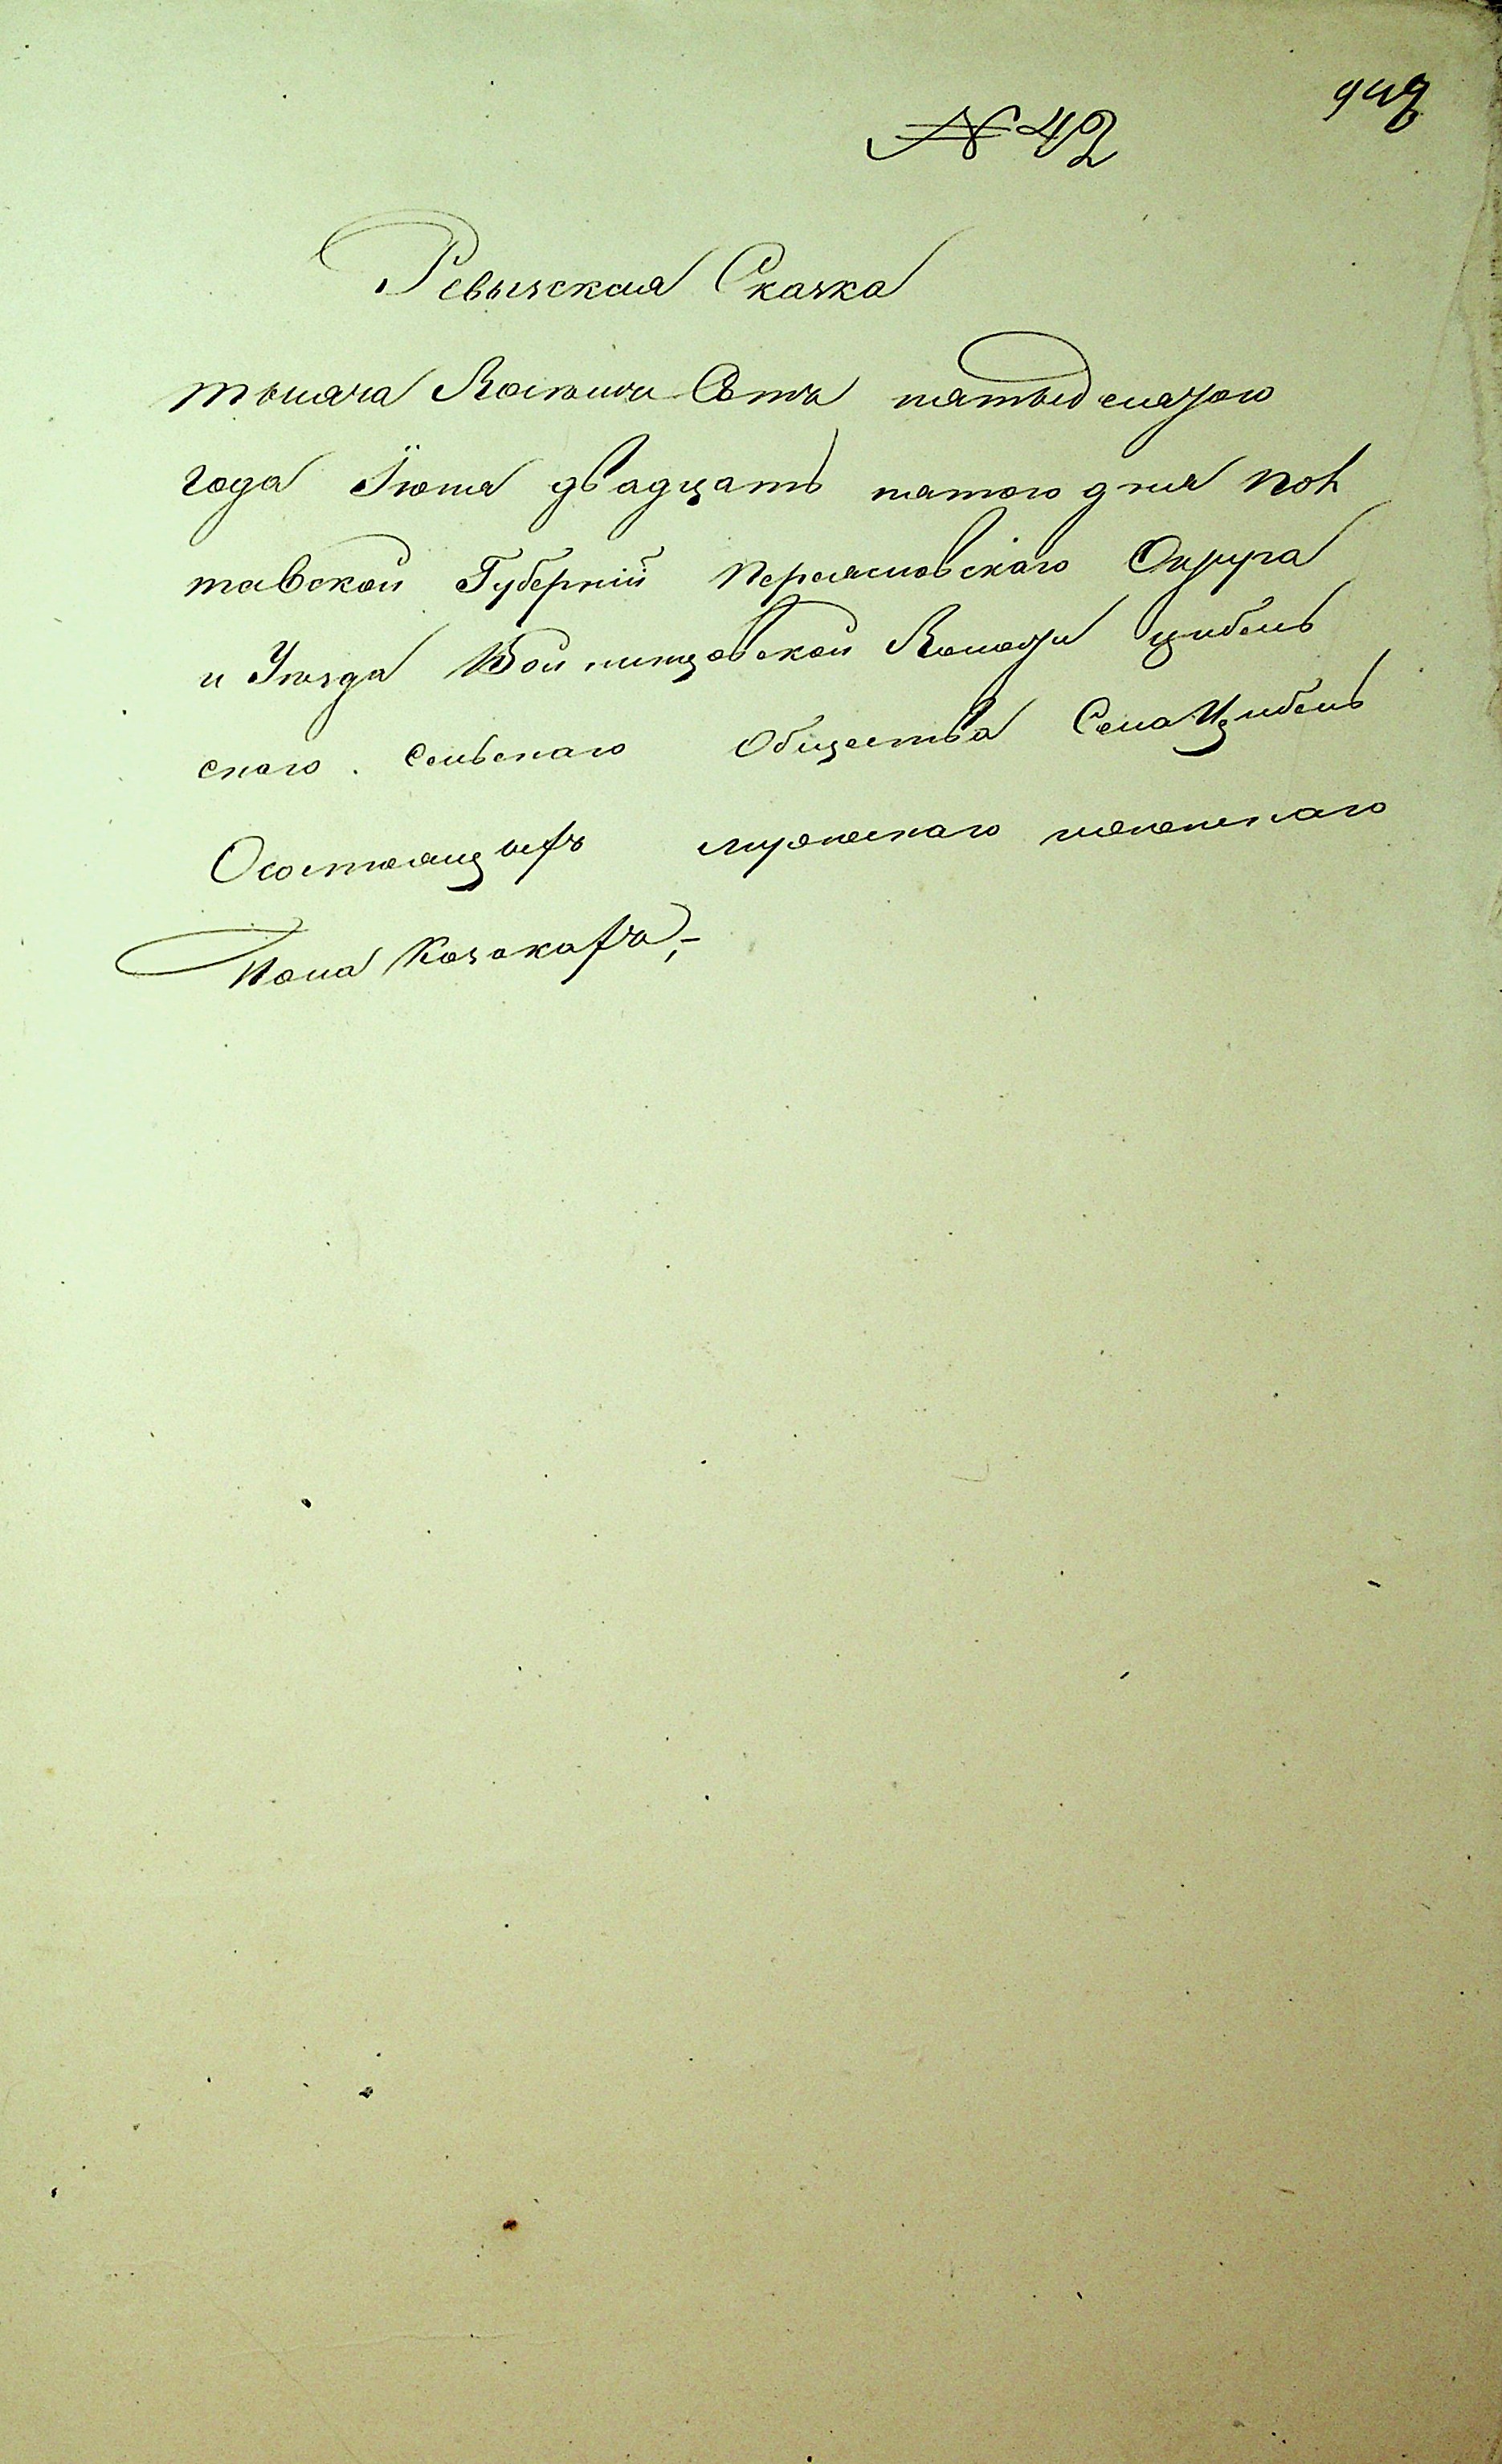 № 42
Ревызская Сказка
тысяча Восемь Сотъ пятьдесятого
года Іюня двадцать пятого дня Пол
тавской Губерніи Переясловскаго Округа
и Уѣзда Войтовцовской Волости Цибель
скаго Сельскаго Общества Села Цибель
Осостоящихъ мужескаго женскаго
Пола Козакахъ